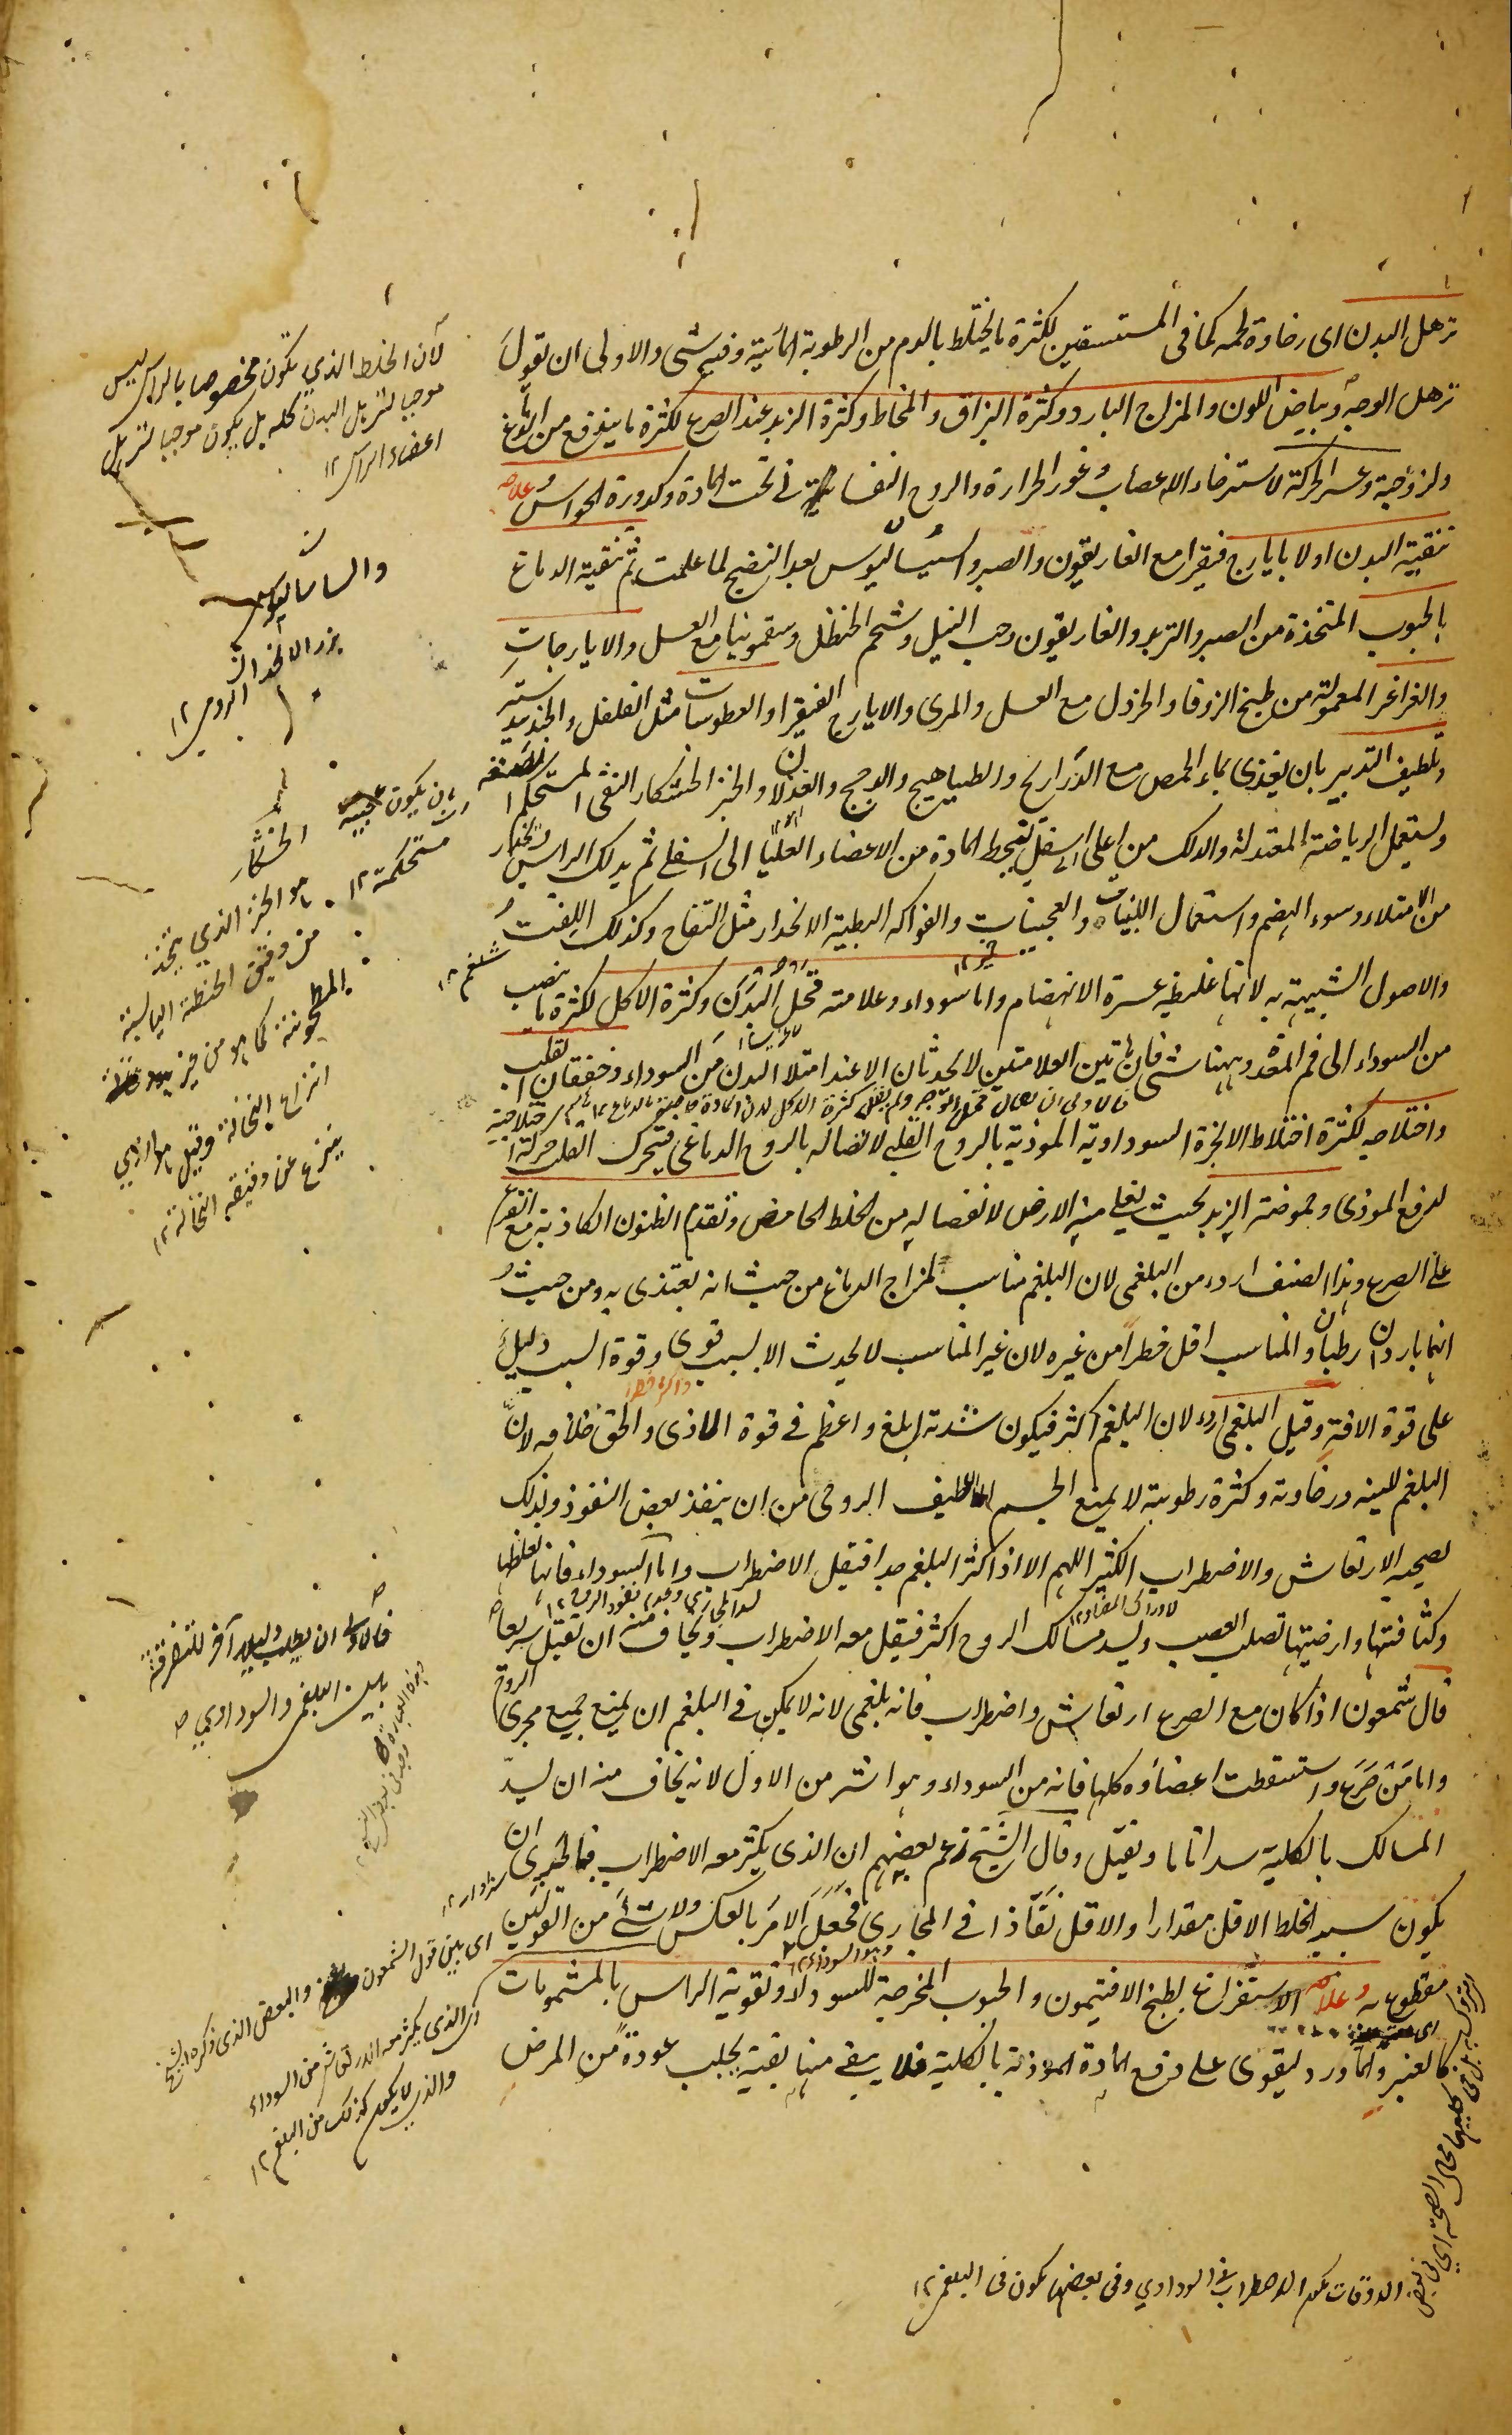 ترهل البدن اى رخاوة لحمه كما فى المستسقين لكثرة ما يختلط بالدم من الرطوبة المائية وفيه شى والاولى ان يقول
ترهل الوجه وبياض اللون والمزاج البارد وكثرة البزاق والمخاط وكثرة الزبد عند الصرع لكثرة ما يندفع من الدماغ
ولزوجته وعسر الحركة لاسترخاء الاعصاب وغور الحرارة والروح النفسانية فى تحت المادة وكدورة الحواس وعلاجه
تنقية البدن اولا بايارج فيقرا مع الغاريقون والصبر واسيساليوس بعد النضج لما علمت ثم تنقية الدماغ
بالحبوب المتخذة من الصبر والتربد والغاريقون وحب النيل وشحم الحنظل وسقمونيا مع العسل والايارجات
والغراغر المعمولة من طبخ الزوفا والخردل مع العسل والمرى والايارج الفيقرا والعطوسات مثل الفلفل والجندبيدستر
وتلطيف التدبير بان يغذى بماء الحمص مع الدراريج والطياهيج والدجج والغزلان والخبز الخشكار النقى المستحكم الصنعة
ويستعمل الرياضة المعتدلة والدلك من اعلى الى اسفل لتحط المادة من الاعضاء العليا الى السفلى ثم يدلك الراس ويحذر
من الامتلاء وسوء الهضم واستعمال اللبنيات والعجينات والفواكه البطيئة الانحدار مثل التفاح وكذلك اللفت
والاصول الشبيهة به لانها غليظة عسرة الانهضام واما سوداء وعلامته قحل البدن وكثرة الاكل لكثرة ما ينصب
من السوداء الى فم المعدة وههنا شى فان هاتين العلامتين لا تحدثان الا عند امتلا البدن من السوداء وخفقان القلب
واختلاجه لكثرة اختلاط الابخرة السوداوية الموذية بالروح القلبى لاتصاله بالروح الدماغى فيتحرك القلب حركة اختلاجية
لدفع الموذى وحموضة الزبد بحيث يغلى منه الارض لانفصاله من الخلط الحامض وتقدم الظنون الكاذبة مع الفزع
على الصرع وهذا الصنف اردء من البلغمى لان البلغم مناسب لمزاج الدماغ من حيث انه يغتذى به ومن حيث
انهما باردان رطبان والمناسب اقل خطرا من غيره لان غير المناسب لا يحدث الا بسبب قوى وقوة السبب دليل
على قوة الافة وقيل البلغمى اردء لان البلغم اكثر فيكون شدته ابلغ واعظم فى قوة الاذى والحق خلافه لان
البلغم للينه ورخاوته وكثرة رطوبته لا يمنع الجسم اللطيف الروحى من ان ينفذ بعض النفوذ ولذلك
يصحبه الارتعاش والاضطراب الكثير اللهم الا اذا كثر البلغم جدا فيقل الاضطراب واما السوداء فانها لغلظها
وكثافتها وارضيتها تصلب العصب ويسد مسالك الروح اكثر فيقل معه الاضطراب ويخاف منه ان تقتل سريعا
قال شمعون اذا كان مع الصرع ارتعاش واضطراب فانه بلغمى لانه لا يمكن فى البلغم ان يمنع جميع مجرى الروح
واما من صرع واستسقطت اعضاؤه كلها فانه من السوداء وهو اشر من الاول لانه يخاف منه ان يسد
المسالك بالكلية سدا تاما ويقتل وقال الشيخ زعم بعضهم ان الذى يكثر معه الاضطراب فبالحرى ان
يكون سببه الخلط الاقل مقدارا والاقل نفاذا فى المجارى فجعل الامر بالعكس ولا شئ من القولين
مقطوع به وعلاجه الاستفراغ بطبخ الافتيمون والحبوب المخرجة للسوداء وتقوية الراس بالمشمومات
كالعنبر والماورد ليقوى على دفع المادة الموذية بالكلية فلا يبقى منها بقية يجلب عودة من المرض
لان الخلط الذي يكون مخصوصا بالراس ليس
موجبا لترهل البدن كله بل يكون موجبا لترهل
اعضاء الراس ١٢
والساساليوس
بزر الانجدان
الرومى ١٢
بان يكون عجينه
مستحكمة ١٢
الخشكار
هو الخبز الذي يتخذ
من دقيق الحنطة اليابسة
المطحونة كما هو من غير
انزاع النخالة وقيل هو الذي
ينزع عن دقيقه النخالة ١٢
شلغم ١٢
فالاولى ان يطلب دليل آخر للتفرقة
بين البلغمى والسوداوي
اى بين قول الشمعون والبعض الذى ذكره الشيخ
اى الذى يكثر معه الارتعاش من السوداء
والذي لا يكون كذلك من البلغم ١٢
الاوقات يكون الاضطراب فى السوداوي وفى بعضها يكون فى البلغمى ١٢